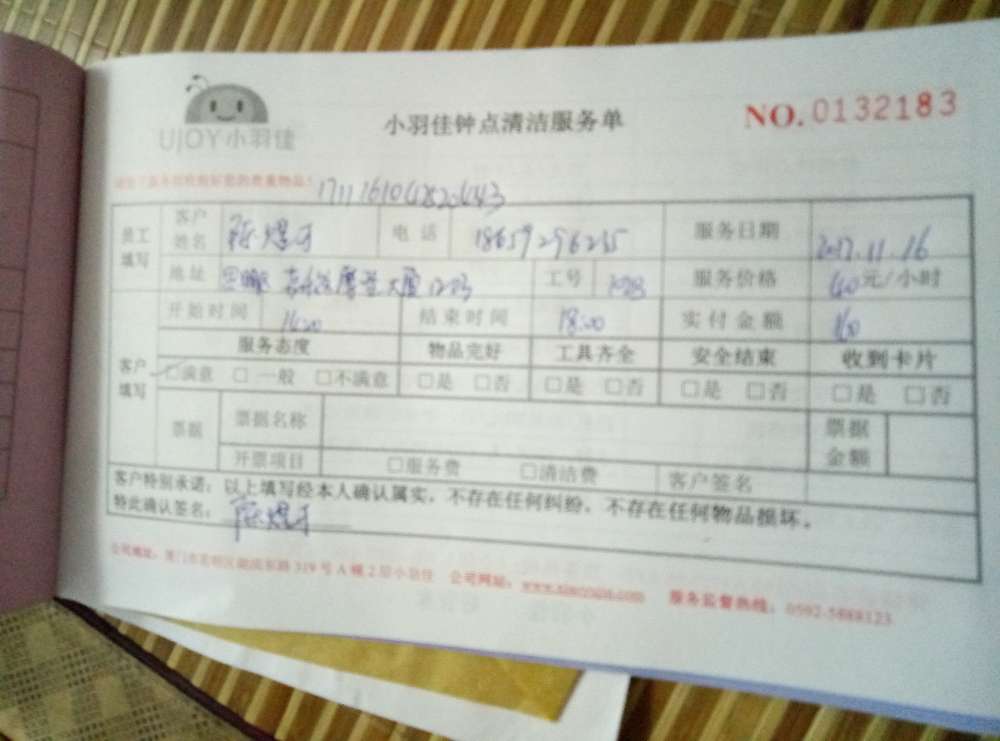 UJOY小羽佳
小羽佳钟点清洁服务单
NO.0132183
员工填写
客户姓名 电话 18659296255 服务日期 2017.11.16
地址 大厦 工号 服务价格 40元/小时
开始时间 14:00 结束时间 18:00 实付金额 160
客户填写
服务态度 物品完好 工具齐全 安全结束 收到卡片
□满意 □一般 □不满意 □是 □否 □是 □否 □是 □否 □是 □否
票据 票据名称 票据金额
开票项目 □服务费 □清洁费 客户签名
客户特别承诺：以上填写经本人确认属实，不存在任何纠纷，不存在任何物品损坏。
特此确认签名：
公司地址： 319号A幢2层小羽佳 公司网站： 服务监督热线：0592-5888123